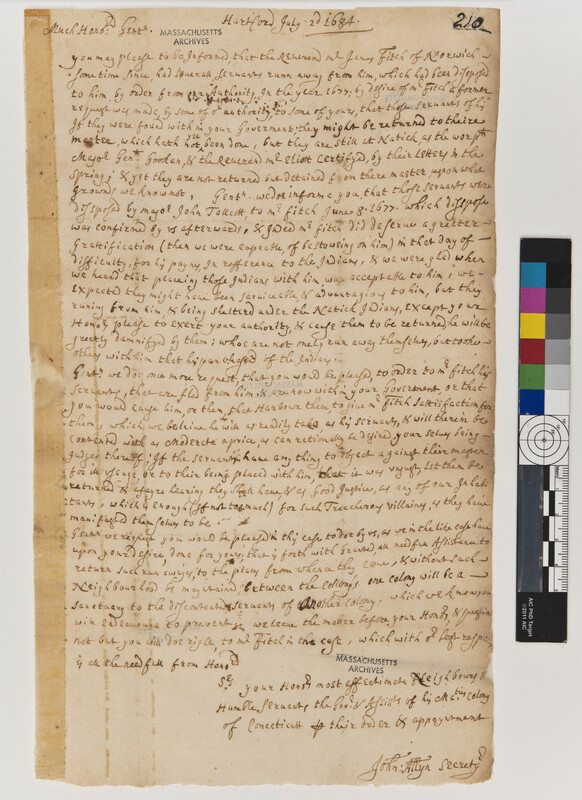 Hartford July. 2d 1684.
210
Much Honod. Gentn.
MASSACHUSETTS
ARCHIVES
you may please to be Informed, that the Reverend mr. James Fitch of Norwich
sometime since, had severall servants runn away from him, which had been disposed
to him by order from our Authority, In the year 1677, by desire of mr. Fitch a former
request was made by some of or authority to some of yours, that those servants of his
If they were found within your Goverment, they might be returned to theire
master, which hath not been done, but they are still at Natick, as the worpll
Major Genll. Gookin, & the Reverend mr. Eliot Certifyed, by their letters in the
Spring; & yet they are not returned but detained from there master upon what
Grownds we know not, Gentn. we doe informe you, that those servants were
disposed by major John Talcott, to mr. Fitch June 8. 1677. which dispose
was confirmed by us afterwards, & Indeed mr. Fitch did deserve a greater
Gratification (then we were capeable of bestowing on him) in that day of
difficulty, for his paynes, In refference to the Indians, & we were glad when
we heard that placeing those Indians with him, was acceptable to him, we
Expected they might have been serviceable & advantagious to him, but they
runing from him, & being sheltered under the Natick Indians, Except your
Honors please to exert your authority, & cause them to be returned, he will be
greatly damnifyed by them; whoe are not onely run away themselves, but tooke
others with him that he purchased of the Indians
Gentn. we doe once more request, that you would be pleased, to order to mr. Fitch his
servants, that are fled from him & are now with in your Government, or that
you would cause him, or them, that Harbour them to give mr. Fitch sattisfaction for
them, which we beleive he will as readily take as his servants, & will therein be
contented with as moderate a price, as can rationally be desired your selves being
judges thereof; If the servants have any thing to object against their master
for ill usage, or to their being placed with him, that it was unjust, let them be
returned & a fayre hearing they shall have, & as Good Justice, as any of our Inhabi
tants, which is enough (If not too much) for such Treacherous villains, as they have
manifested themselves to be.
Gentn. we request you would be pleased in this case to doe by us, as we in the like case have
upon your desire, done for yours, that is forth with Graunt, all needfull Assistance to
return such runawayes, to the place from whence they came, & without such
Neighbourhood be maytained between the Collonys one Colony will be a
Sanctuary to the discontented servants of Another Colony. which we know you
will endeavoure to prevent; we leave the matter before your Honors, & question
not but you will doe right to mr. Fitch in the case, which with or best respects
is all the needfull from Honod
MASSACHUSETTS
ARCHIVES
Srs. your Honors most affectionate Neighbours &
Humble servants, the Govr. & Assists of his Maties Colony
of Conecticutt p their order & appoyntment
John: Allyn Secrety